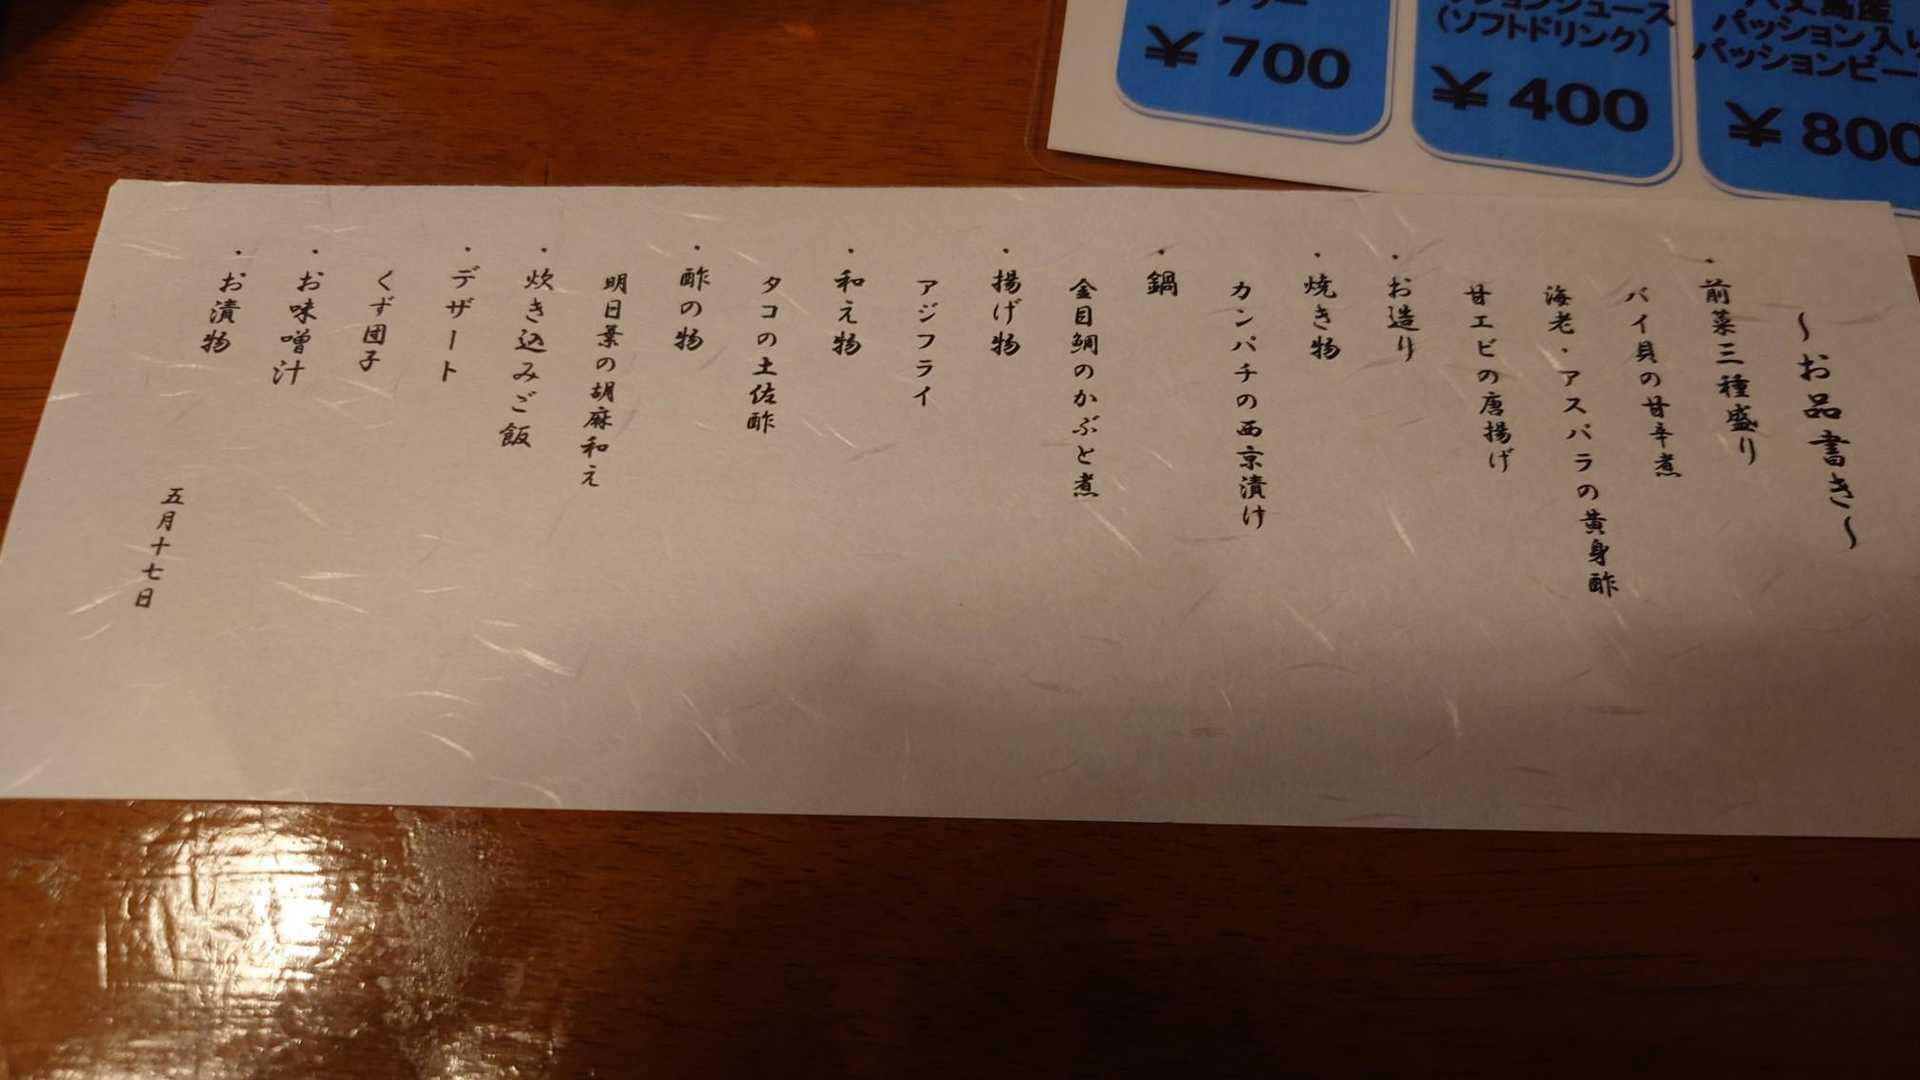 ～お品書き～
・前菜三種盛り
バイ貝の甘辛煮
海老・アスパラの黄身酢
甘エビの唐揚げ
・お造り
・焼き物
カンパチの西京漬け
・鍋
金目鯛のかぶと煮
・揚げ物
アジフライ
・和え物
タコの土佐酢
・酢の物
明日葉の胡麻和え
・炊き込みご飯
・デザート
くず団子
・お味噌汁
・お漬物
五月十七日
¥700
(ソフトドリンク)
¥400
パッション入り
パッションビー
¥800